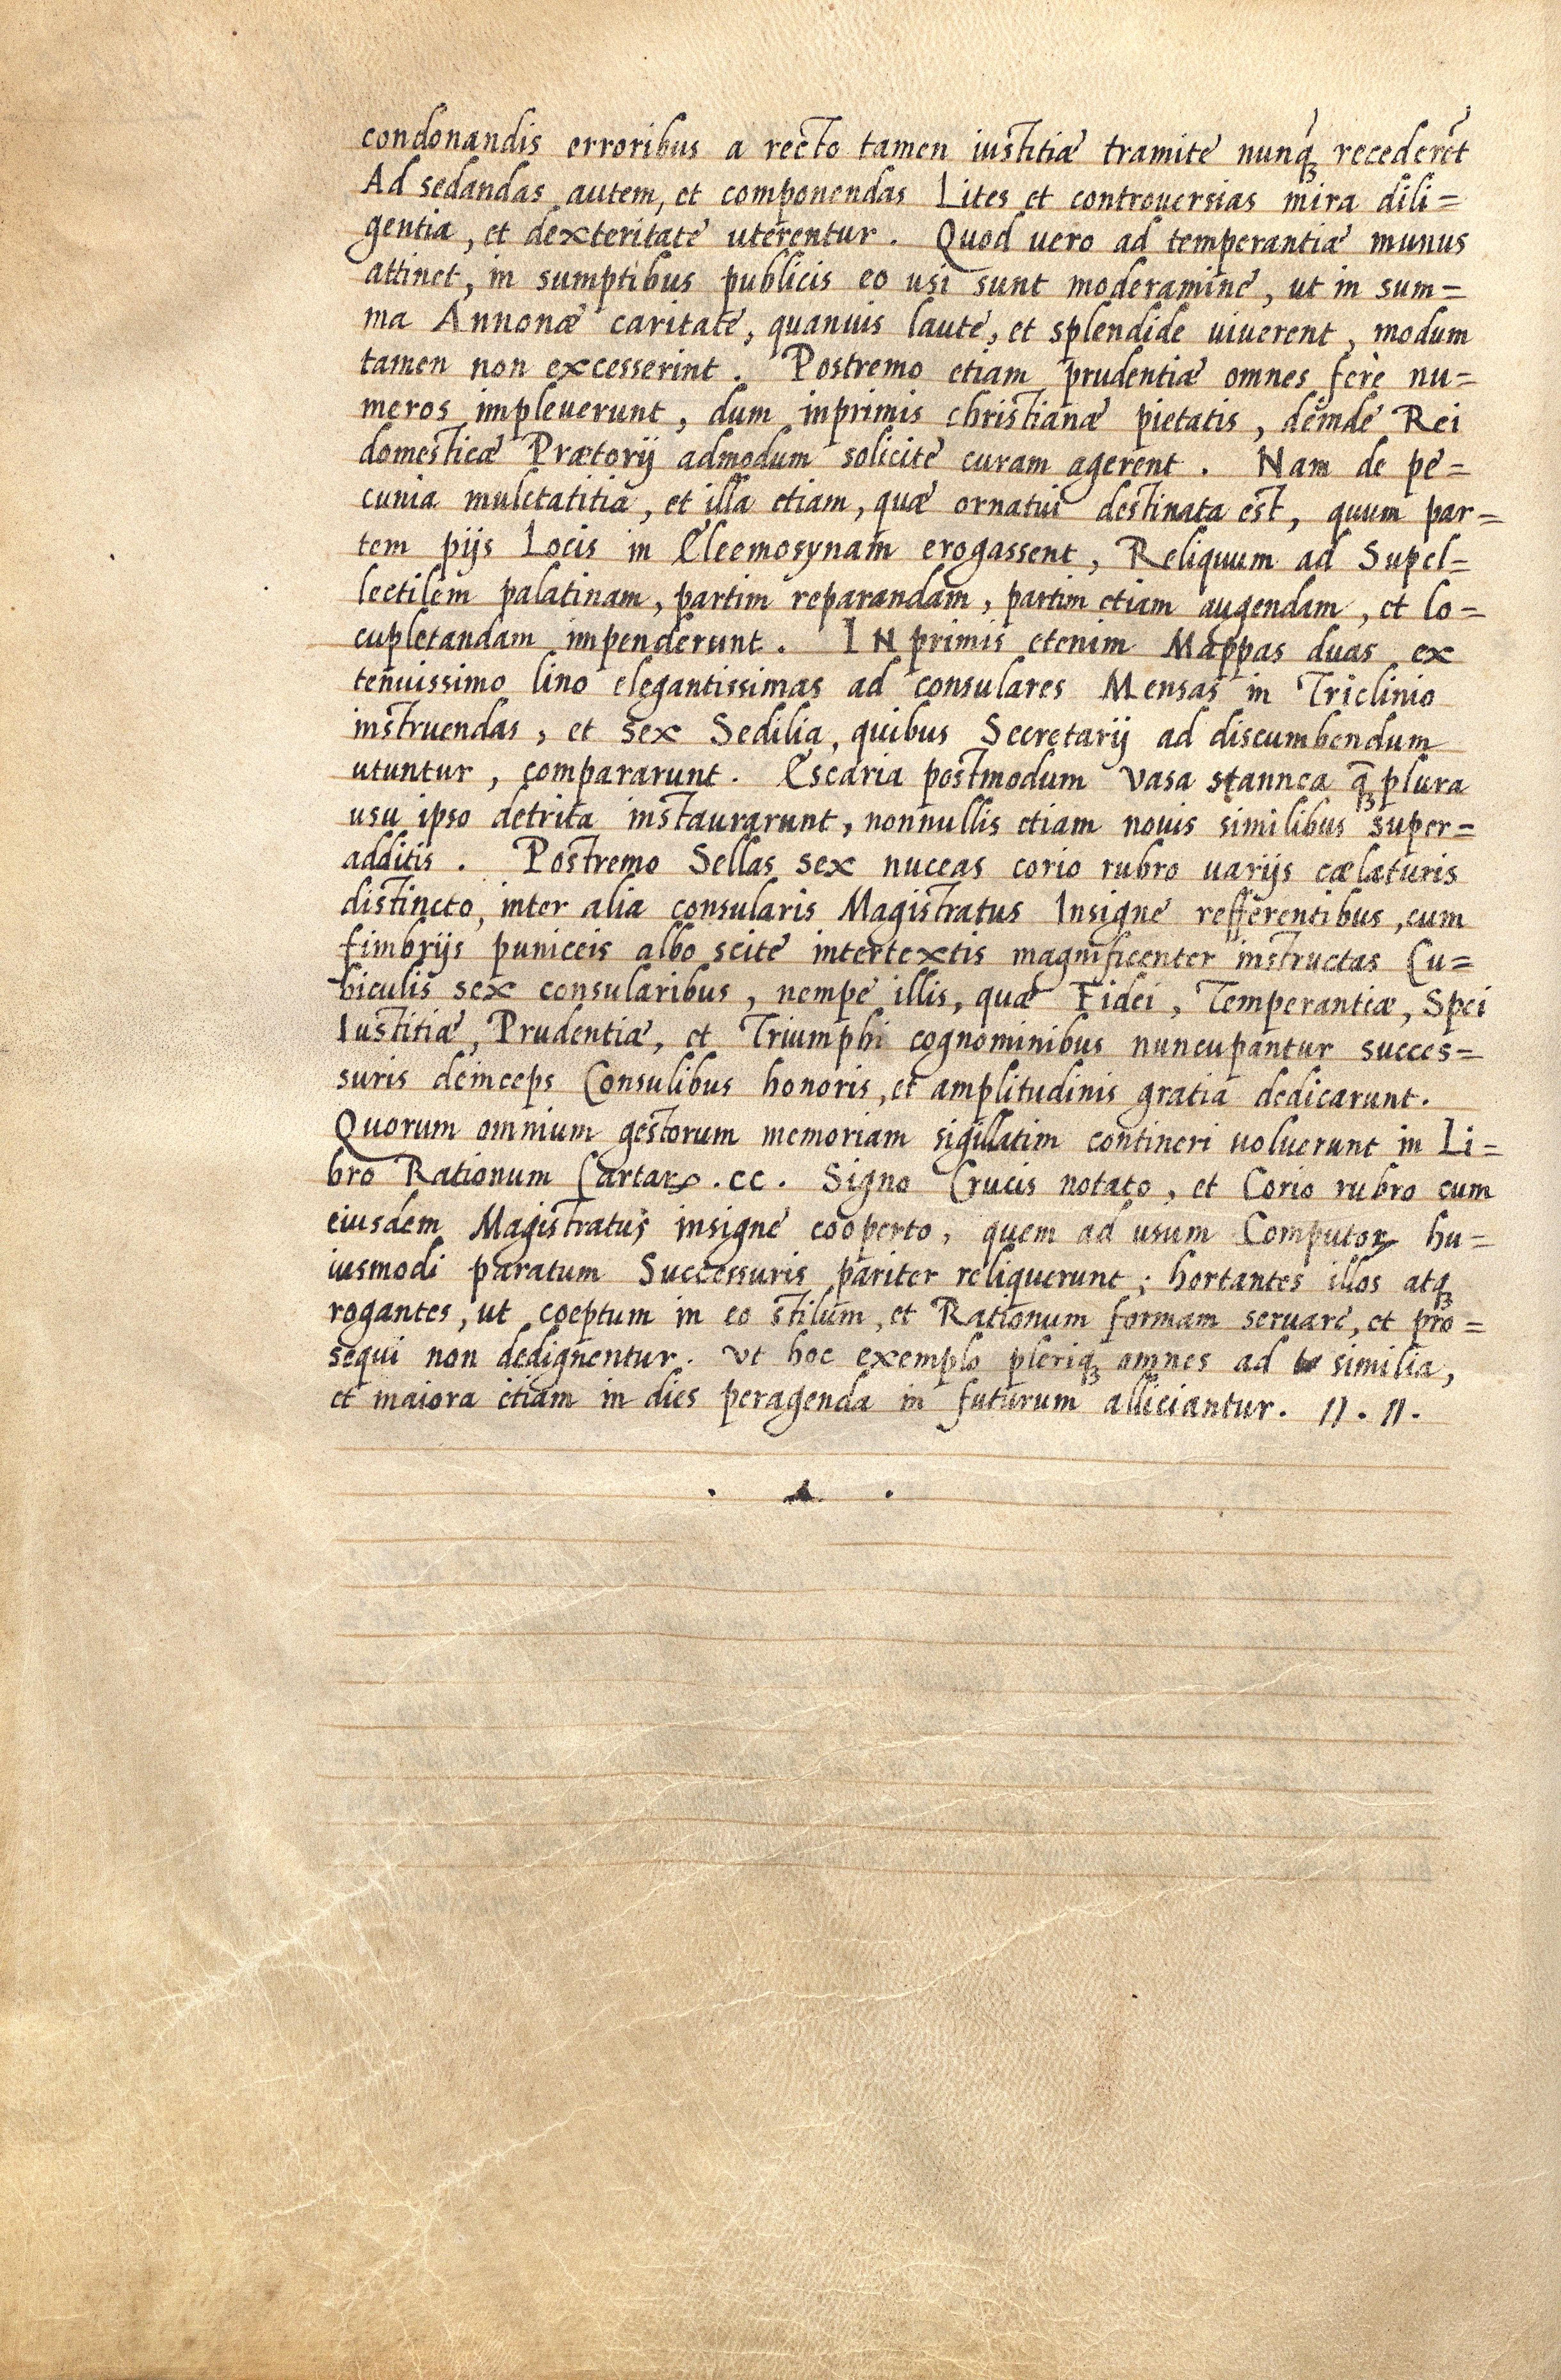 condonandis erroribus a recto tamen iustitiæ tramite nunq̃ꝫ recederẽt
Ad sedandas autem, et componendas Lites et controuersias mira dili=
gentia, et dexteritate uterentur. Quod vero ad temperantiæ munus
attinet, in sumptibus publicis eo usi sunt moderamine, ut in sum=
ma Annonæ caritate, quanuis laute, et splendide uiuerent, modum
tamen non excesserint. Postremo etiam prudentiæ omnes ferè nu=
meros impleuerunt, dum inprimis christianæ pietatis, deinde Rei
domesticæ Prætorij admodum solicite curam agerent. Nam de pe=
cunia mulctatitia, et illa etiam, quæ ornatui destinata est, quum par=
tem pijs Locis in Eleemosynam erogassent, Reliquum ad Supel=
lectilem palatinam, partim reparandam, partim etiam augendam, et lo=
cupletandam impenderunt. INprimis etenim Mappas duas ex
tenuissimo lino elegantissimas ad consulares Mensas in Triclinio
instruendas, et sex Sedilia, quibus Secretarij ad discumbendum
utuntur, compararunt. Escaria postmodum vasa stannea q̃ꝫ plura
usu ipso detrita instaurarunt, nonnullis etiam nouis similibus super=
additis. Postremo Sellas sex nuceas corio rubro uarijs cælaturis
distincto, inter alia consularis Magistratus Insigne refferentibus, cum
fimbrijs puniceis albo scite intertextis magnificenter instructas Cu=
biculis sex consularibus, nempe illis, quæ Fidei, Temperantiæ, Spei
Iustitiæ, Prudentiæ, et Triumphi cognominibus nuncupantur succes=
suris deinceps Consulibus honoris, et amplitudinis gratia dedicarunt.
Quorum omnium gestorum memoriam sigillatim contineri uoluerunt in Li=
bro Rationum Cartarꝝ .cc. Signo Crucis notato, et Corio rubro cum
eiusdem Magistratus insigne cooperto, quem ad usum Computoꝝ hu=
iusmodi paratum Successuris pariter reliquerunt; hortantes illos atqꝫ
rogantes, ut coeptum in eo stilum, et Rationum formam seruare, et pro=
sequi non dedignentur. Vt hoc exemplo pleriqꝫ omnes ad similia,
et maiora etiam in dies peragenda in futurum alliciantur. //. //.